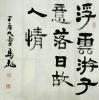 浮雲游子
意落日故
人情